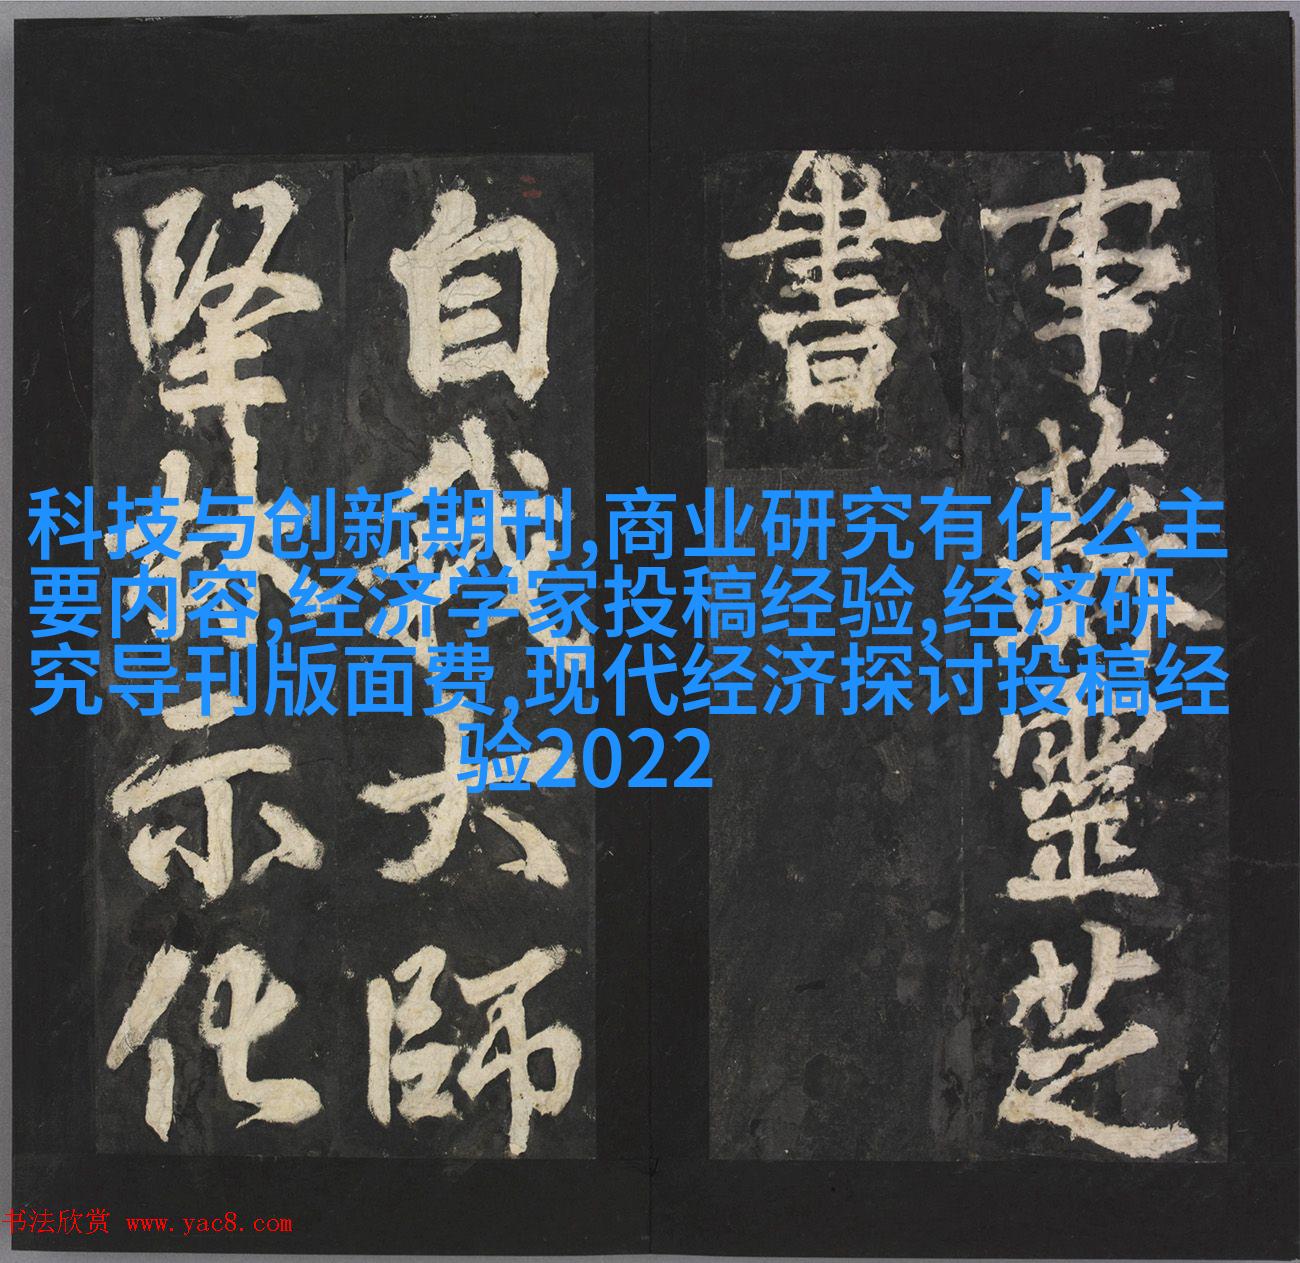 事蘇靈芝
書
自我大師
堅林示化
科技与创新期刊,商业研究有什么主
要内容,经济学家投稿经验,经济研
究导刊版面费,现代经济探讨投稿经
验2022
书法欣赏 www.yac8.com